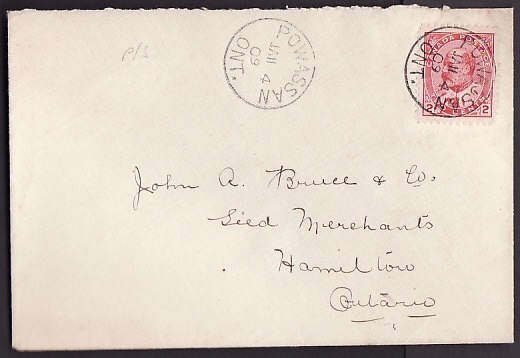 P/S
POWASSAN
JAN 4
09
ONT.
CANADA POSTAGE
POWASSAN
JAN 4
09
ONT.
2 2
John A. Bruce & Co.
Seed Merchants
Hamilton
Ontario